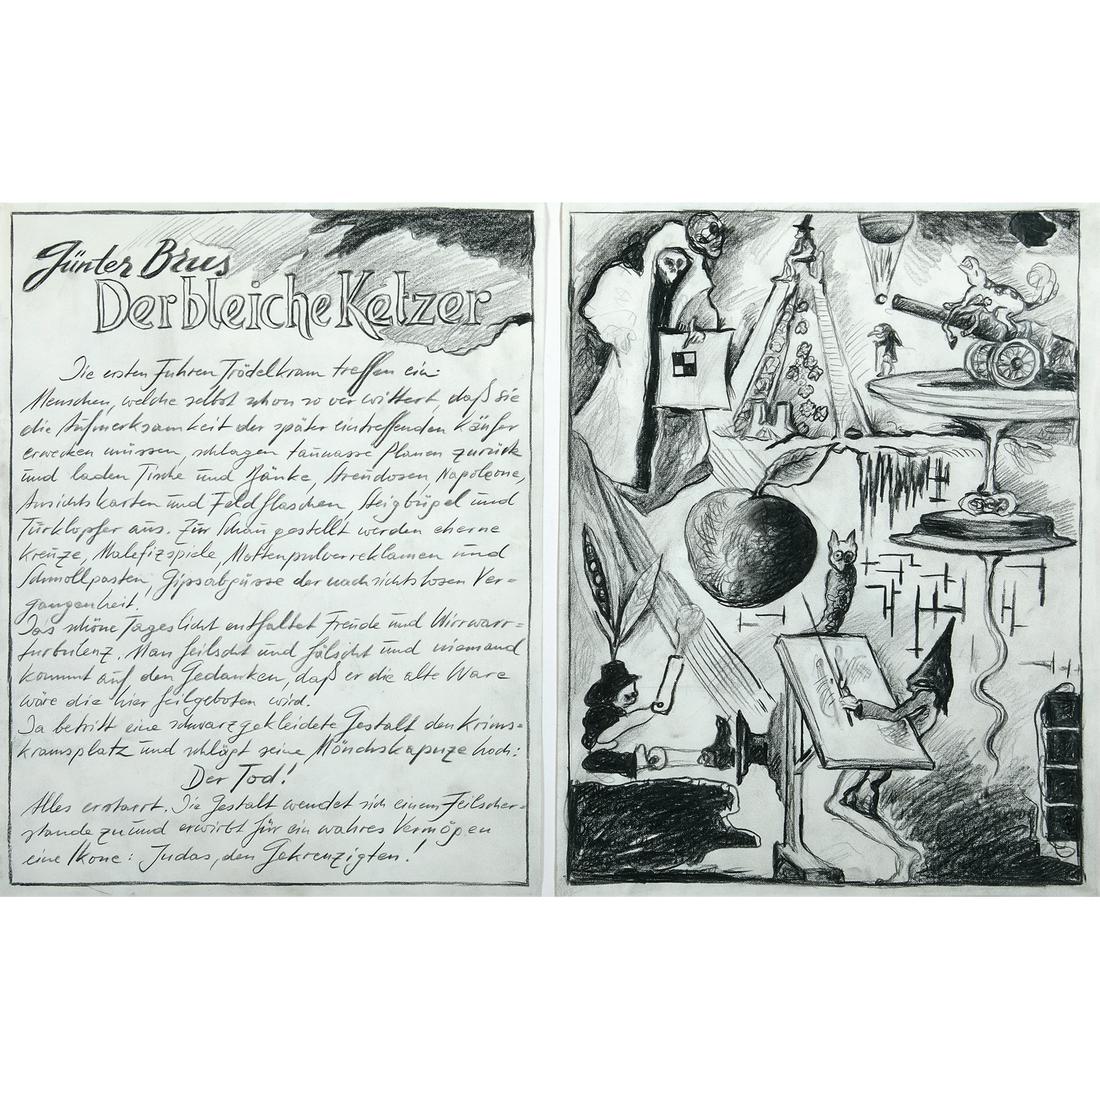 Günter Brus
Der bleiche Ketzer
Die ersten Fuhren Trödelkram treffen ein.
Menschen, welche selbst schon so verwittert, daß sie
die Aufmerksamkeit der später eintreffenden Käufer
erwecken müssen, schlagen taunasse Planen zurück
und laden Tische und Bänke, Streudosen, Napoleone,
Ansichtskarten und Feldflaschen, Steigbügel und
Türklopfer aus. Zur Schau gestellt werden eherne
Kreuze, Malefizspiele, Mottenpulverreklamen und
Schmollpasten, Gipsabgüsse der nachsichtslosen Ver=
gangenheit.
Das schöne Tageslicht entfaltet Freude und Wirrwarr=
turbulenz. Man feilscht und fälscht und niemand
kommt auf den Gedanken, daß er die alte Ware
wäre die hier feilgeboten wird.
Da betritt eine schwarzgekleidete Gestalt den Krims=
kramsplatz und schlägt seine Mönchskapuze hoch:
Der Tod!
Alles erstarrt. Die Gestalt wendet sich einem Feilscher=
stande zu und erwirbt für ein wahres Vermögen
eine Ikone: Judas, den Gekreuzigten!